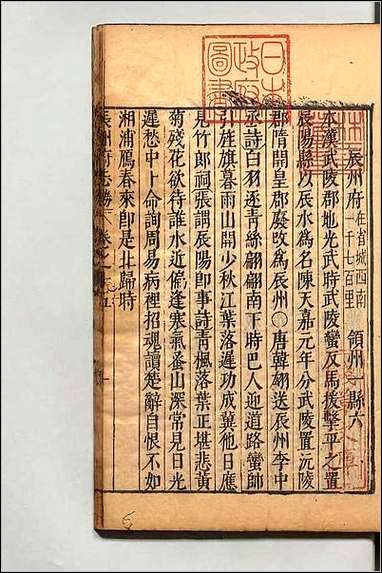 辰州府在省城西南一千七百里 領州一縣六
本漢武陵郡地光武時武陵蠻反馬援擊平之置
辰陽縣以辰水為名陳天嘉元年分武陵置沅陵
郡隋開皇郡廢改為辰州〇唐韓翃送辰州李中
丞詩白羽逐青絲翩翩南下時巴人迎道路蠻帥
引旌旗暮雨山開少秋江葉落遲功成冀他日應
見竹郎祠張謂辰陽即事詩青楓落葉正堪悲黃
菊殘花欲待誰水近偏逢寒氣蚤山深常見日光
遲愁中卜命詢周易病裡招魂讀楚辭自恨不如
湘浦鴈春來即是北歸時
日本
政府
圖書